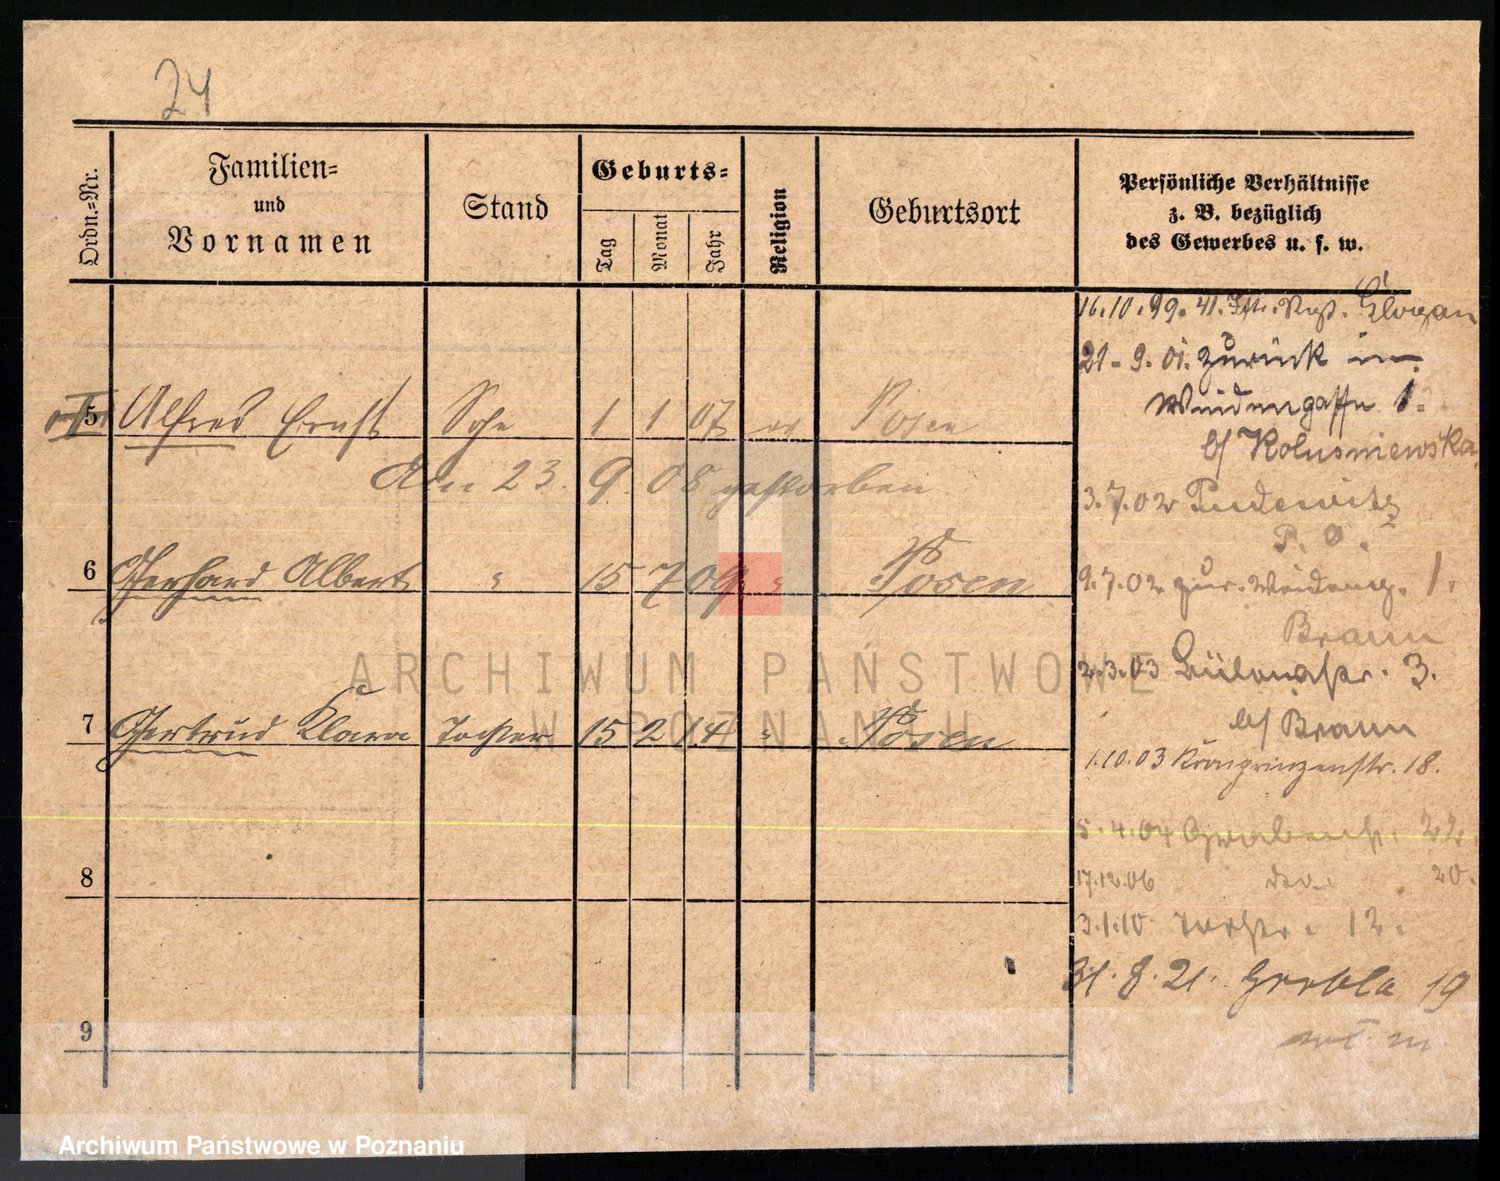 24
Ordn.=Nr.
Familien=
und
Vornamen
Stand
Geburts=
Tag
Monat
Jahr
Religion
Geburtsort
Persönliche Verhältnisse
z. B. bezüglich
des Gewerbes u. s. w.
16.10.99. 41. Inf. Rgt. Glogau
21-9.01. zurück in
Weidengasse 1.
b/ Kolusniewska
3.7.02 Pudewitz
P. O.
9.7.02 zur. Weideng. 1.
Braun
2.3.03 Bülowstr. 3.
b/ Braun
1.10.03 Kronprinzenstr. 18.
5.4.04 Grabenstr. 22.
17.12.06 20.
3.1.10 12.
31.8.21. Grobla 19
5 Alfred Ernst Sohn 1 1 07 Posen
Am 23. 9. 08 gestorben
6 Gerhard Albert " 15 7 09 " Posen
7 Gertrud Klara Tochter 15 2 14 " Posen
8
9
ARCHIWUM PAŃSTWOWE
W POZNANIU
Archiwum Państwowe w Poznaniu